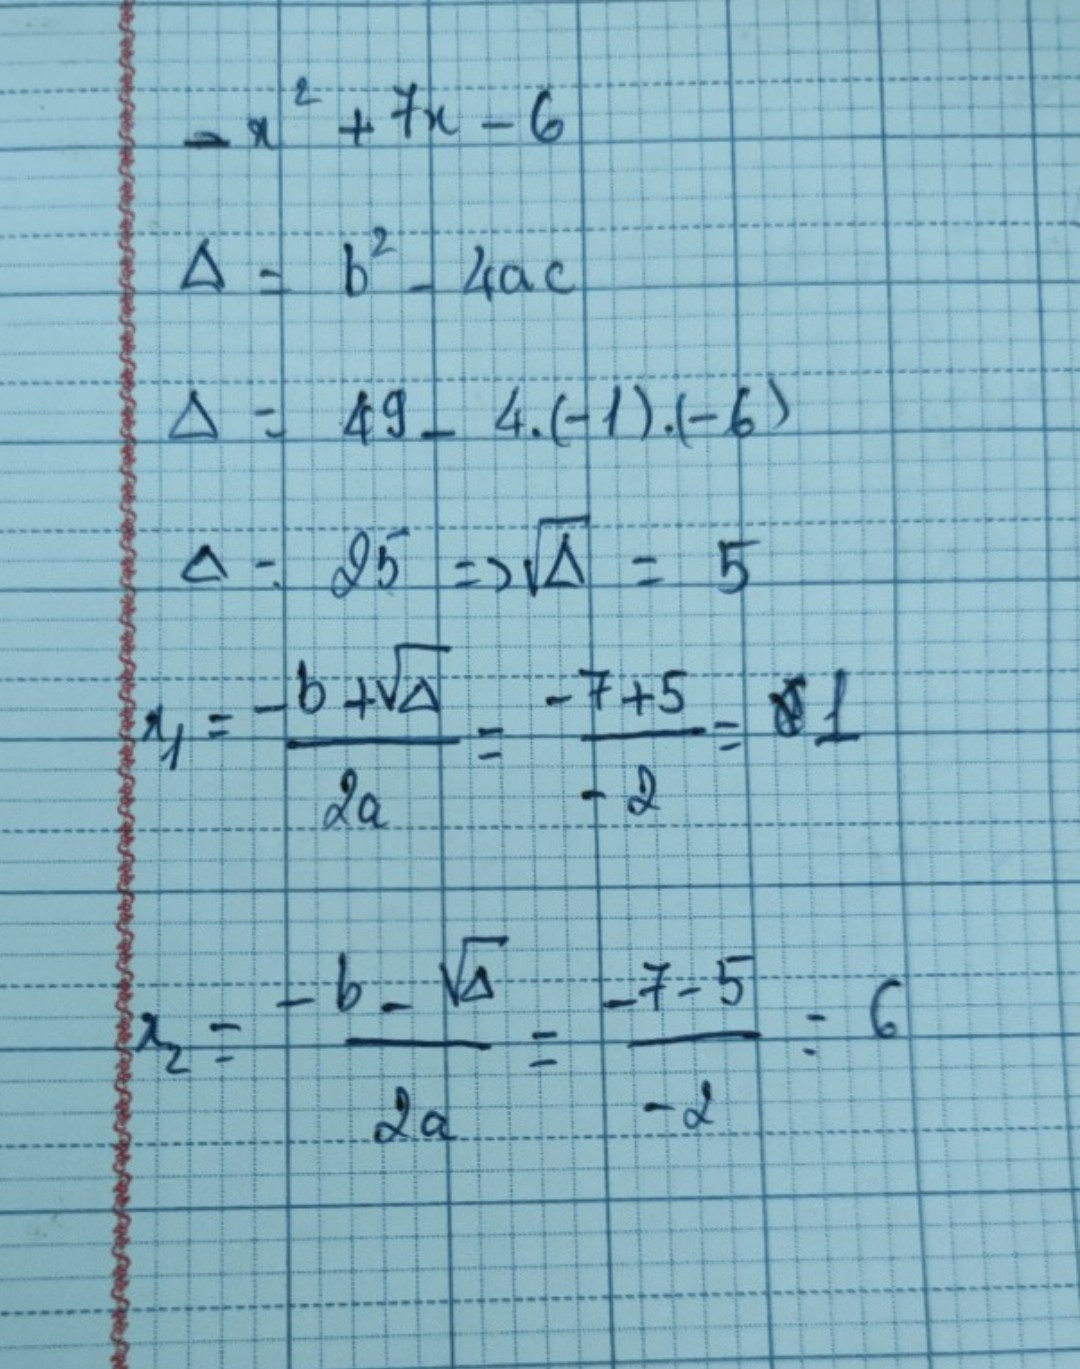 -x² + 7x - 6
Δ = b² - 4ac
Δ = 49 - 4.(-1).(-6)
Δ = 25 => √Δ = 5
x₁ = (-b + √Δ)/2a = (-7+5)/-2 = 1
x₂ = (-b - √Δ)/2a = (-7-5)/-2 = 6